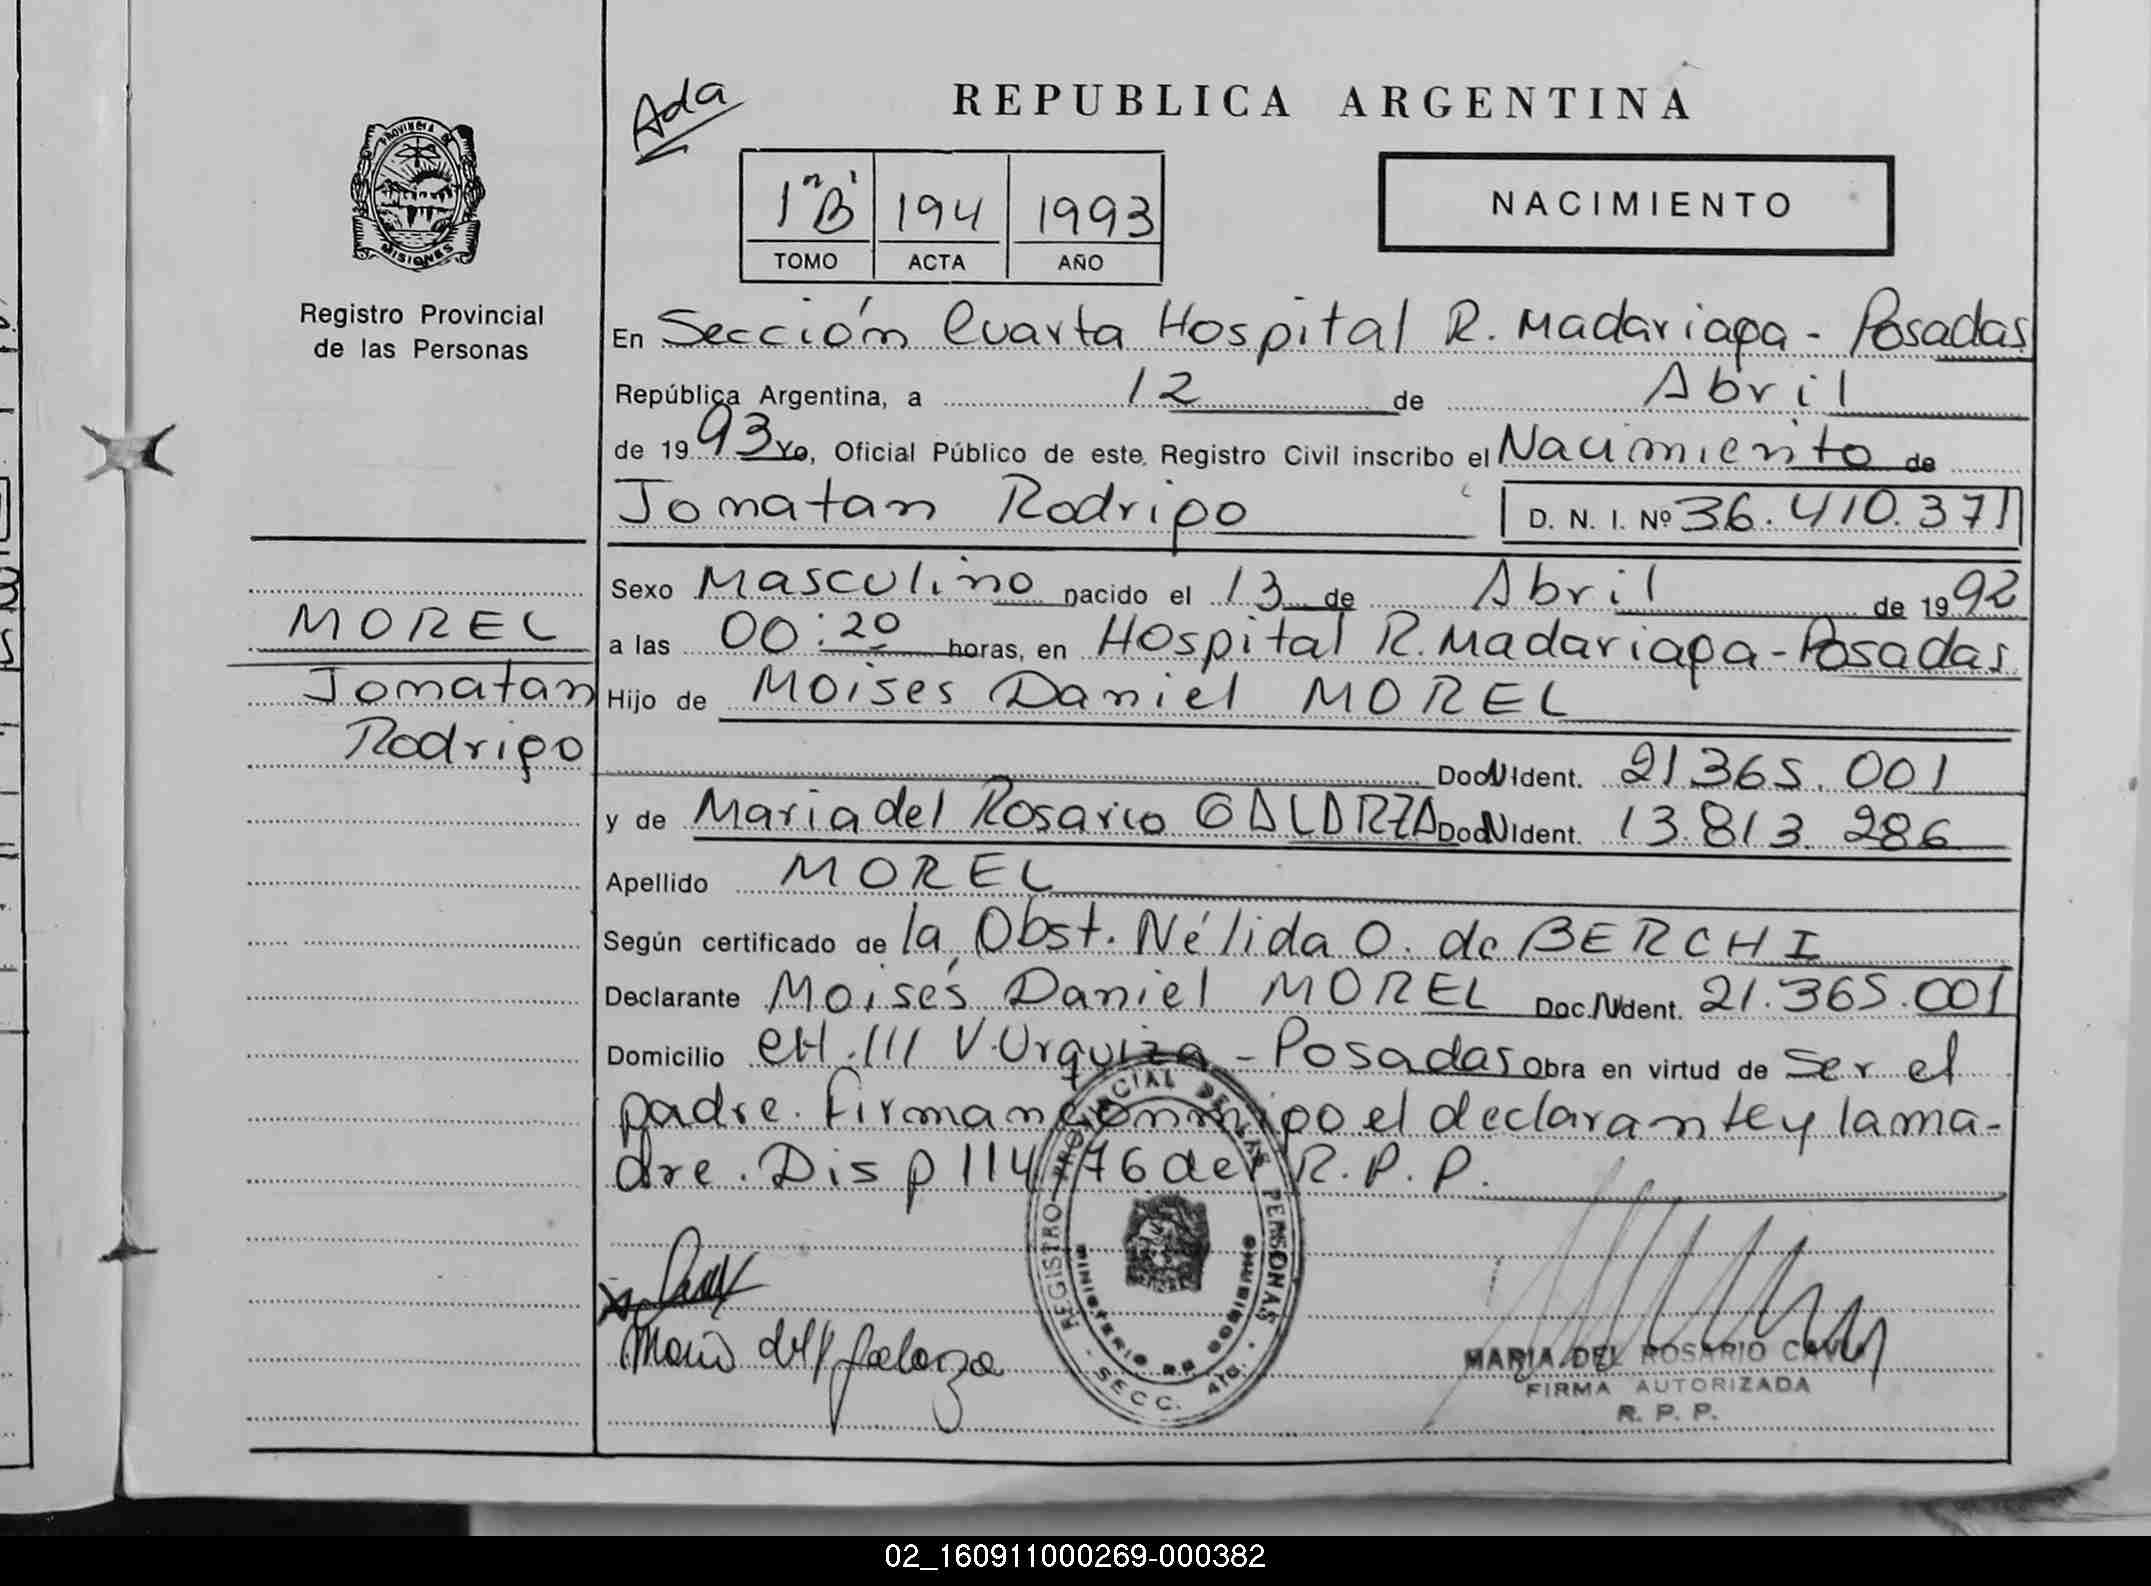 Ada
REPUBLICA ARGENTINA
PROVINCIA DE
MISIONES
Registro Provincial
de las Personas
1"B" 194 1993
TOMO ACTA AÑO
NACIMIENTO
En Sección Cuarta Hospital R. Madariaga - Posadas
República Argentina, a 12 de Abril
de 1993 Yo, Oficial Público de este Registro Civil inscribo el Nacimiento de
Jonatan Rodrigo D. N. I. Nº 36.410.371
Sexo Masculino nacido el 13 de Abril de 1992
MOREL
a las 00:20 horas, en Hospital R. Madariaga - Posadas
Jonatan
Hijo de Moises Daniel MOREL
Rodrigo
Doc N Ident. 21.365.001
y de Maria del Rosario GALARZA Doc N Ident. 13.813.286
Apellido MOREL
Según certificado de la Obst. Nélida O. de BERCHI
Declarante Moisés Daniel MOREL Doc. N Ident. 21.365.001
Domicilio CH.111 V. Urquiza - Posadas Obra en virtud de ser el
padre. Firman conmigo el declarante y la ma-
dre. Disp 114/76 del R.P.P.
REGISTRO PROVINCIAL DE LAS PERSONAS
MINISTERIO DE GOBIERNO
- SECC. 4TA. -
MARIA DEL ROSARIO
FIRMA AUTORIZADA
R. P. P.
02_160911000269-000382